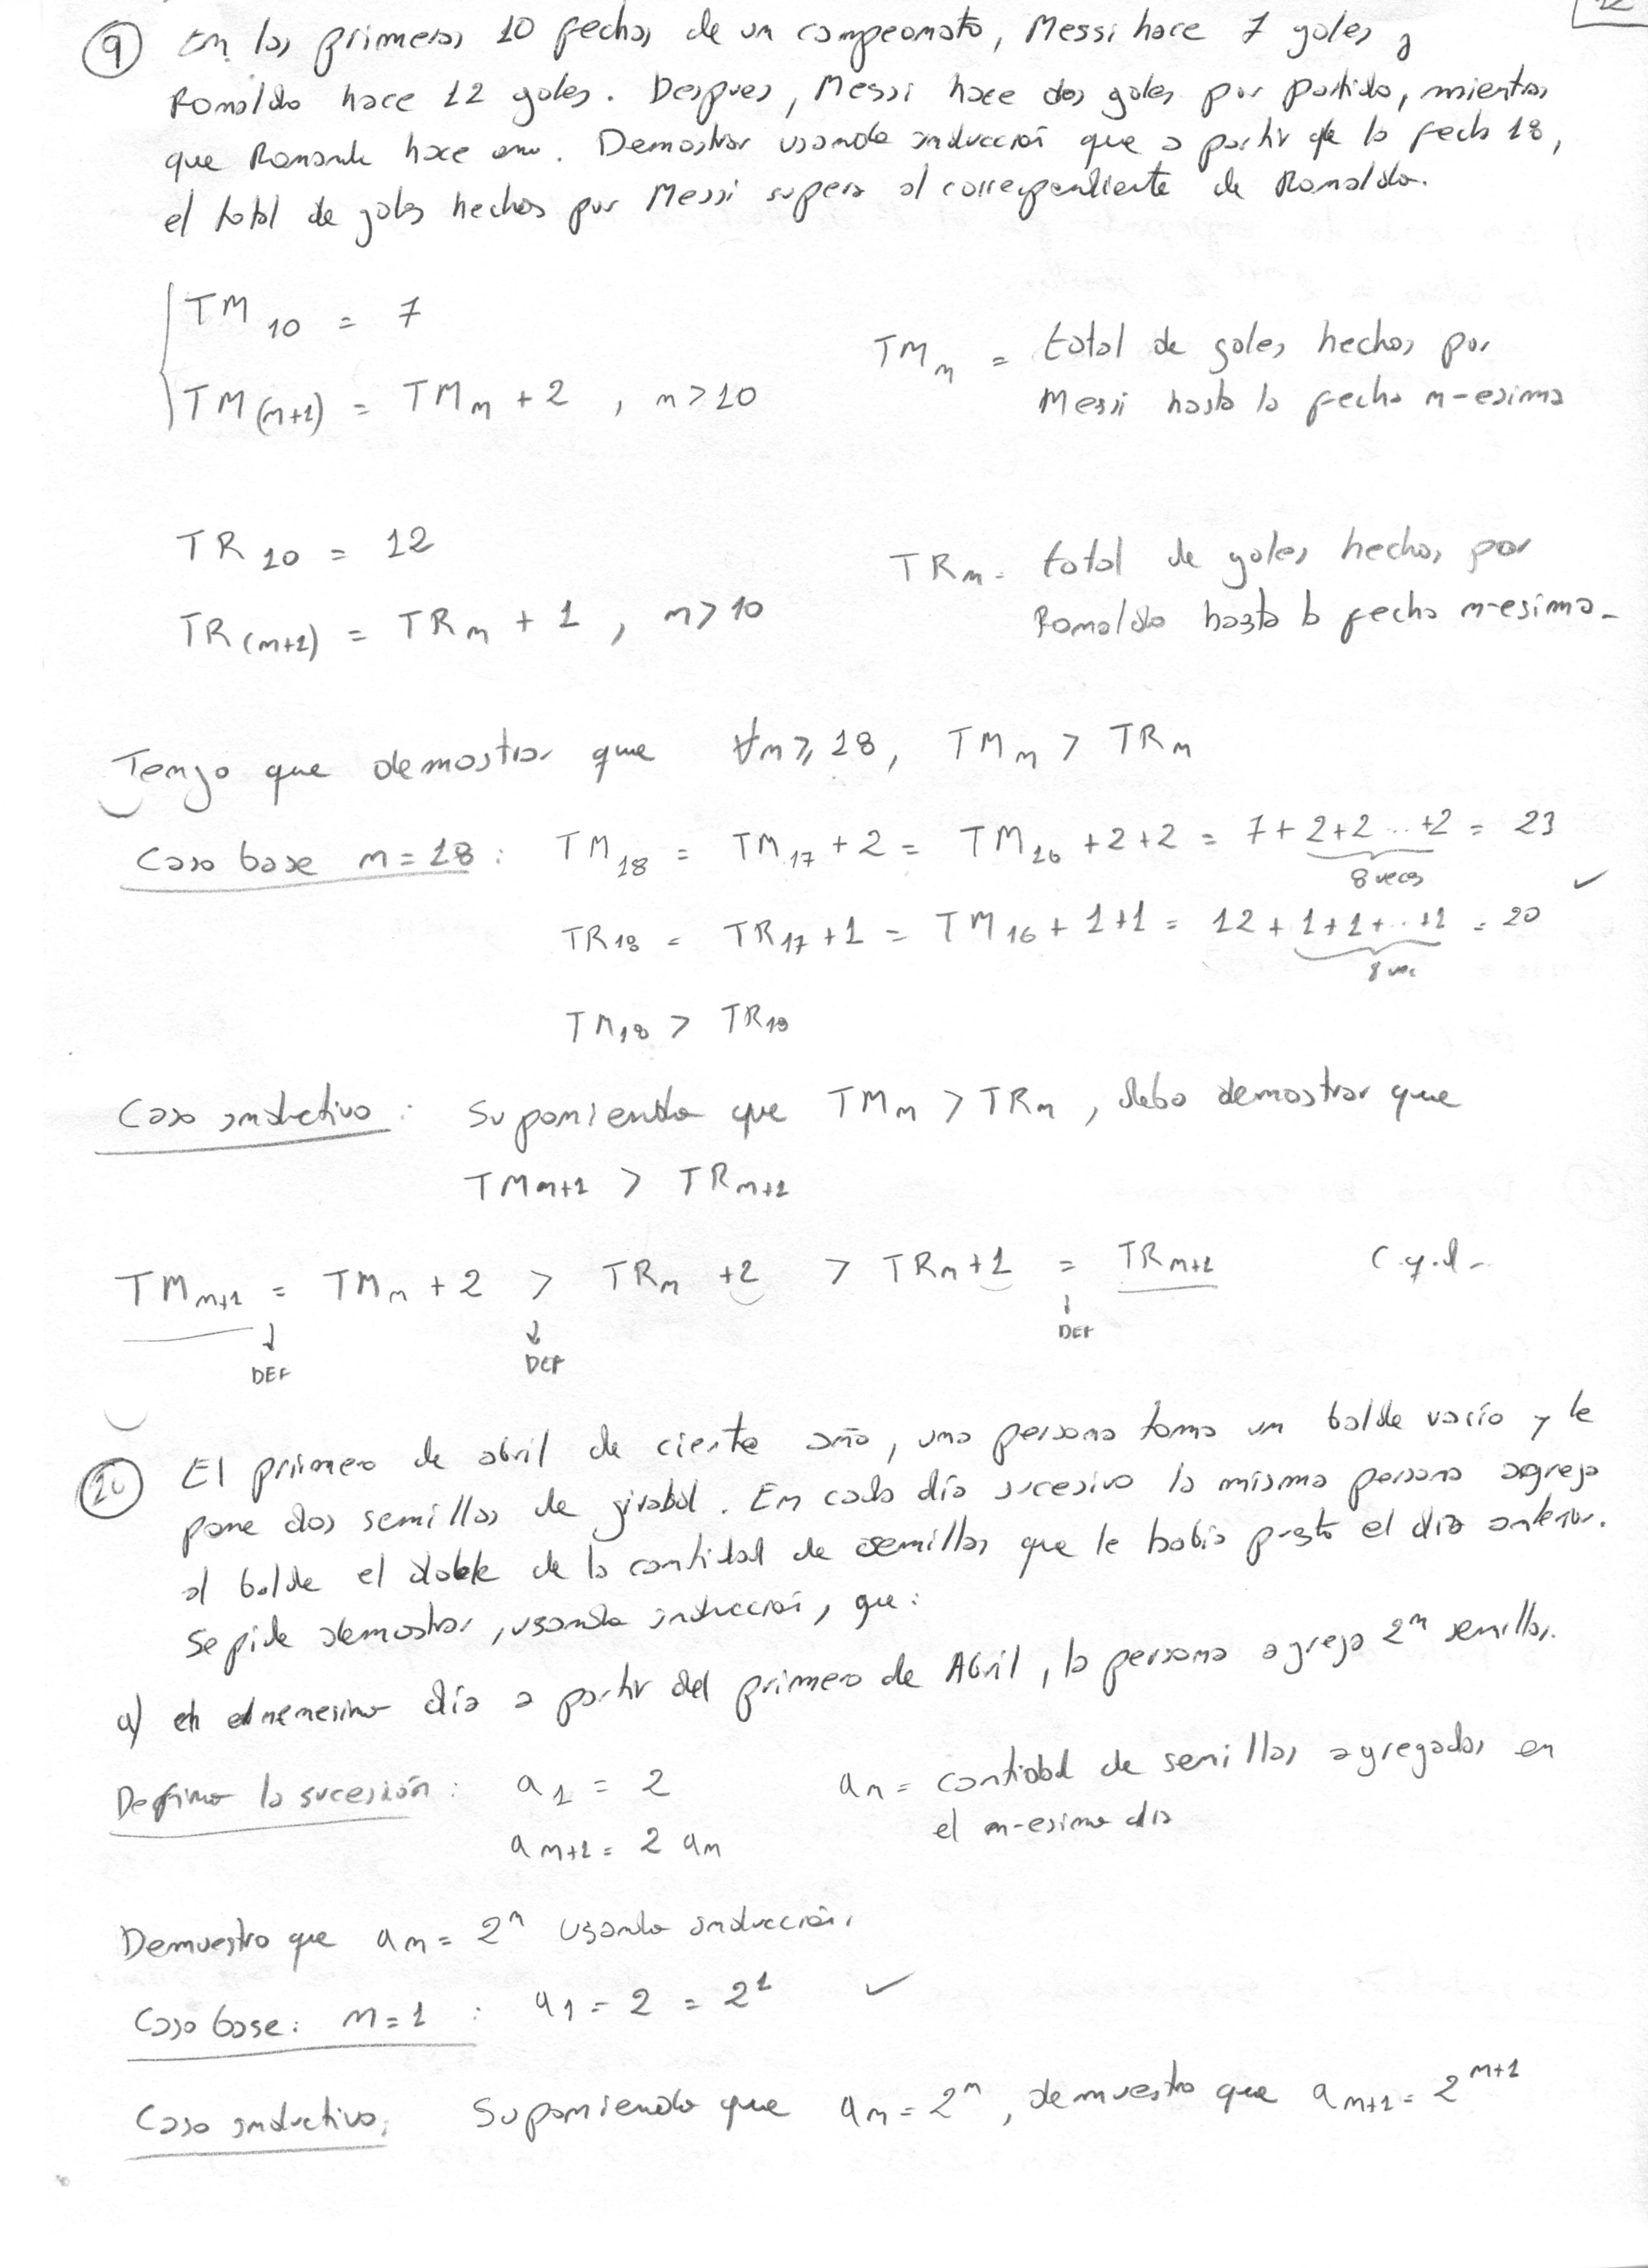 9 En las primeras 10 fechas de un campeonato, Messi hace 7 goles y
Ronaldo hace 12 goles. Despues, Messi hace dos goles por partido, mientras
que Ronaldo hace uno. Demostrar usando inducción que a partir de la fecha 18,
el total de goles hechos por Messi supera al correspondiente de Ronaldo.
TM 10 = 7
TM (n+1) = TM n + 2 , n > 10
TM n = total de goles hechos por
Messi hasta la fecha n-esima
TR 10 = 12
TR (n+1) = TR n + 1 , n > 10
TR n = total de goles hechos por
Ronaldo hasta la fecha n-esima.
Tengo que demostrar que ∀n ≥ 18, TM n > TR n
Caso base n = 18 : TM 18 = TM 17 + 2 = TM 16 + 2 + 2 = 7 + 2+2 ... +2 = 23
8 veces ✓
TR 18 = TR 17 + 1 = TM 16 + 1+1 = 12 + 1+1+...+1 = 20
8 vec
TM 18 > TR 18
Caso inductivo : Suponiendo que TM n > TR n , debo demostrar que
TM n+1 > TR n+1
TM n+1 = TM n + 2 > TR n + 2 > TR n + 1 = TR n+1 C.q.d.
DEF DEF DEF
10 El primero de abril de cierto año, una persona toma un balde vacío y le
pone dos semillas de girasol. En cada día sucesivo la misma persona agrega
al balde el doble de la cantidad de semillas que le había puesto el día anterior.
Se pide demostrar, usando inducción, que:
a) en el día a partir del primero de Abril, la persona agrega 2^n semillas.
Defino la sucesión : a 1 = 2
a n+1 = 2 a n
a n = cantidad de semillas agregadas en
el n-esimo día
Demuestro que a n = 2^n usando inducción.
Caso base: n = 1 : a 1 = 2 = 2^1 ✓
Caso inductivo: Suponiendo que a n = 2^n , demuestro que a n+1 = 2^n+1